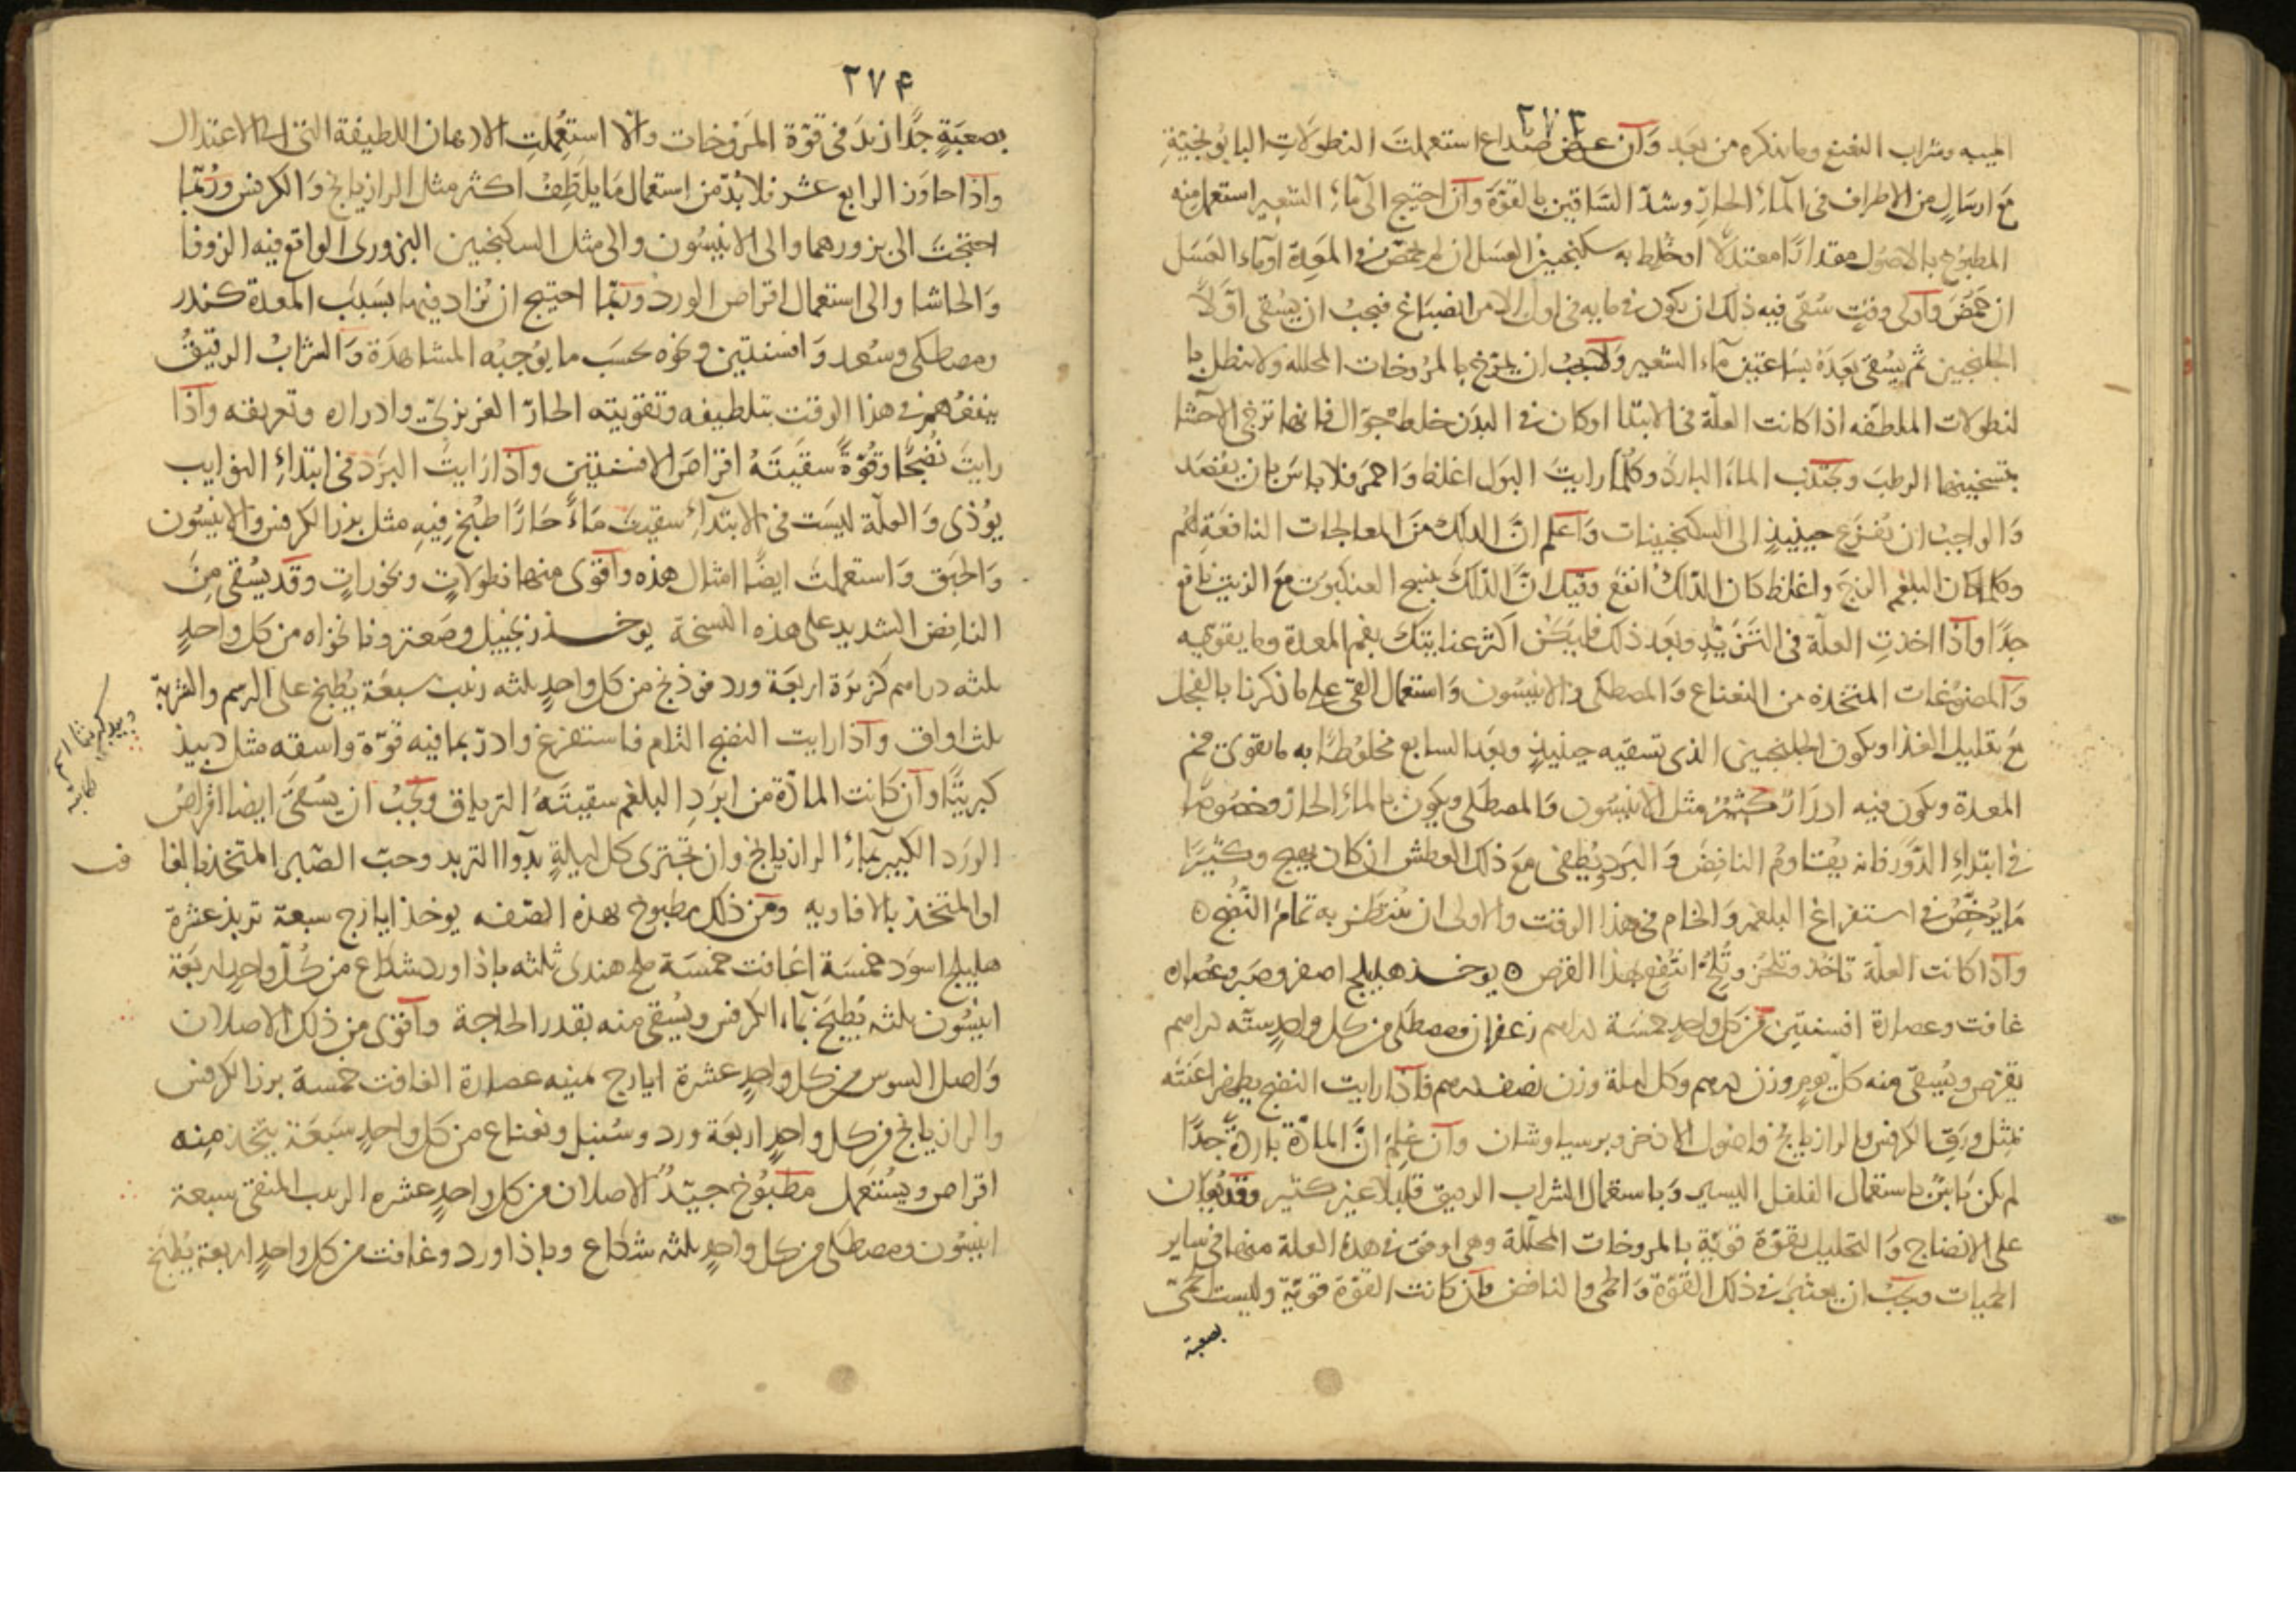 ٢٧٣
الميبه وشراب النعنع وما نذكره من بعد وان عرض صداع استعملت النطولات البابونجية
مع ارسال من الاطراف في الماء الحار وشد الساقين بالقوة وان احتيج الى ماء الشعير استعمل منه
المطبوخ بالاصول مقدارا معتدلا او خلط به سكنجبين العسل ان لم يحمض في المعدة او ماء العسل
ان حمض واولى وقت سقى فيه ذلك ان يكون في مايه في اول الامر انصباغ فيجب ان يسقى اولا
الجلنجبين ثم يسقى بعده بساعتين ماء الشعير ويجب ان يمرخ بالمروخات المحلله ولا ينطل با
لنطولات الملطفه اذا كانت العلة في الابتدا او كان في البدن خلط جوال فانها ترخي الاحشا
بتسخينها الرطب وتجذب الماء البارد وكلما رايت البول اغلظ واحمر فلا باس بان يفصد
والواجب ان يفزع حينيذ الى السكنجبينات واعلم ان الدلك من المعالجات النافعة لهم
وكلما كان البلغم الزج واغلظ كان الدلك انفع وقيل ان الدلك بنسج العنكبوت مع الزيت نافع
جدا واذا اخذت العلة في التزيد وبعد ذلك فليكن اكثر عنايتك بفم المعدة وما يقويه
والمضوغات المتخذه من النعناع والمصطكى والانيسون واستعمال القي على ما ذكرنا بالفجل
مع تقليل الغذا ويكون الجلنجبين الذي تسقيه حينيذ وبعد السابع مخلوطا به ما يقوي فم
المعدة ويكون فيه ادرار كثير مثل الانيسون والمصطكى ويكون بالماء الحار وخصوصا
في ابتداء الدور فانه يقاوم النافض والبرد ويطفى مع ذلك العطش ان كان يهيج وكثيرا
ما يرخص في استفراغ البلغم والخام في هذا الوقت والاولى ان ينتظر به تمام النضج ه
واذا كانت العلة تاخذ وتلح انتفع بهذا القرص ه يوخذ هليلج اصفر وصبر وعصاره
غافت وعصارة افسنتين من كل واحد خمسة دراهم زعفران ومصطكى من كل واحد ستة دراهم
يقرص ويسقى منه كل يوم وزن درهم وكل ليلة وزن نصف درهم فاذا رايت النضج يظهر اعنته
بمثل ورق الكرفس والرازيانج واصول الاذخر وبرسياوشان وان علم ان المادة باردة جدا
لم يكن باس باستعمال الفلفل اليسير وباستعمال الشراب الرقيق قليلا غير كثير وقد يعان
على الانضاج والتحليل بقوة قوية بالمروخات المحللة وهي اوفق في هذه العلة منها في ساير
الحميات ويجب ان يعتبر في ذلك القوة والحمى والنافض فان كانت القوة قوية وليست الحمى
بصعبة
٢٧۴
بصعبة جدا ازيد في قوة المروخات والا استعملت الادهان اللطيفة التي الى الاعتدال
واذا جاوز الرابع عشر فلا بد من استعمال ما يلطف اكثر مثل الرازيانج والكرفس وربما
احتجت الى بزورهما والى الانيسون والى مثل السكنجبين البزوري الواقع فيه الزوفا
والحاشا والى استعمال اقراص الورد وربما احتيج ان تزاد فيها بسبب المعدة كندر
ومصطكى وسعد وافسنتين ونحوه بحسب ما يوجبه المشاهدة والشراب الرقيق
ينفعهم في هذا الوقت بتلطيفه وتقويته الحار الغريزي وادراره وتعريقه واذا
رايت نضجا وقوة سقيته اقراص الافسنتين واذا رايت البرد في ابتداء النوايب
يوذي والعلة ليست في الابتداء سقيت ماء حارا طبخ فيه مثل بزر الكرفس والانيسون
والحبق واستعملت ايضا امثال هذه واقوى منها نطولات وبخورات وقد يسقى من
النافض الشديد على هذه النسخة يوخذ زنجبيل وصعتر ونانخواه من كل واحد
ثلثه دراهم كزبرة اربعة ورد فوذنج من كل واحد ثلثه زبيب سبعة يطبخ على الرسم والشربة
ثلث اواق واذا رايت النضج التام فاستفرغ وادر بما فيه قوة واسقه مثل دبيذ
كبريتا وان كانت المادة من ابرد البلغم سقيته الترياق ويجب ان يسقى ايضا اقراص
الورد الكبير بماء الرازيانج وان تجتري كل ليلة بدوا التربد وحب الصبر المتخذ بالغا
فت
او المتخذ بالافاويه ومن ذلك مطبوخ بهذه الصفه يوخذ ايارج سبعة تربد عشرة
هليلج اسود خمسة اغافت خمسة ملح هندى ثلثه باذاورد شكاع من كل واحد اربعة
انيسون ثلثه يطبخ بماء الكرفس ويسقى منه بقدر الحاجة واقوى من ذلك الاصلان
واصل السوس من كل واحد عشرة ايارج ثمنيه عصارة الغافت خمسة بزر الكرفس
والرازيانج من كل واحد اربعة ورد وسنبل ونعناع من كل واحد سبعة يتخذ منه
اقراص ويستعمل مطبوخ جيد الاصلان من كل واحد عشره الزبيب المنقى سبعة
انيسون ومصطكى من كل واحد ثلثه شكاع وباذاورد وغافت من كل واحد اربعة يطبخ